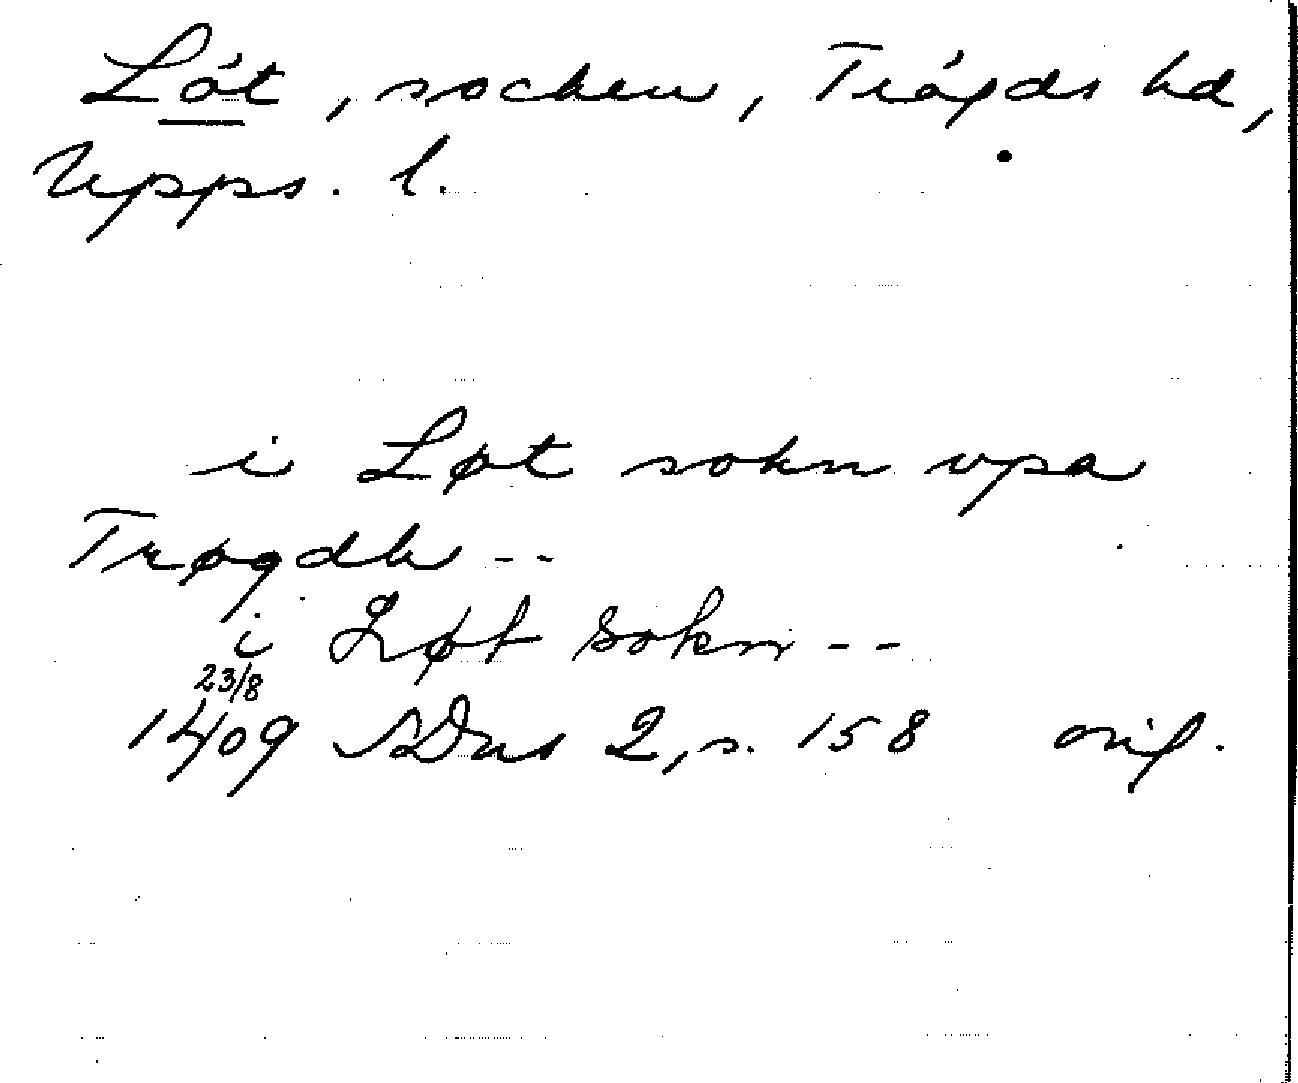 Löt, socken, Trögds hd,
Upps. l.
i Løt sokn vpa
Trøgdh --
i Løt sokn --
23/8
1409 SDns 2, s. 158 orig.